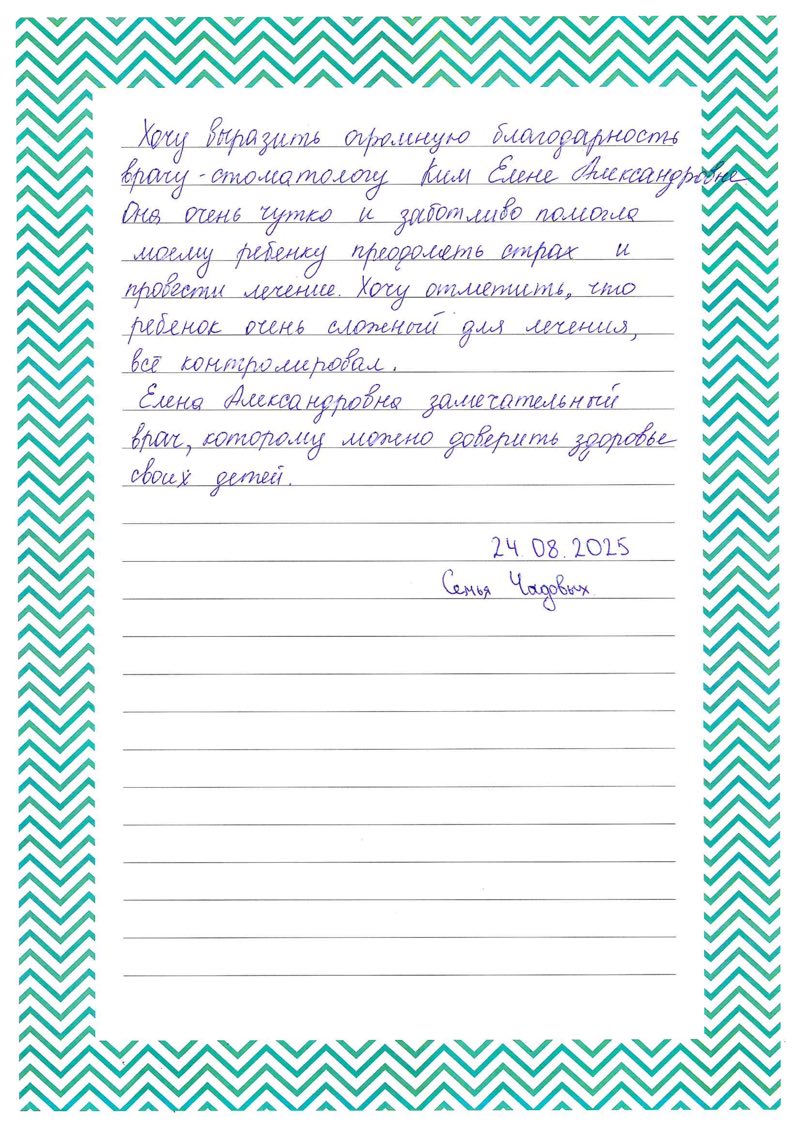 Хочу выразить огромную благодарность
врачу-стоматологу Ким Елене Александровне
Она очень чутко и заботливо помогла
моему ребенку преодолеть страх и
провести лечение. Хочу отметить, что
ребенок очень сложный для лечения,
всё контролировал.
Елена Александровна замечательный
врач, которому можно доверить здоровье
своих детей.
24.08.2025
Семья Чадовых.